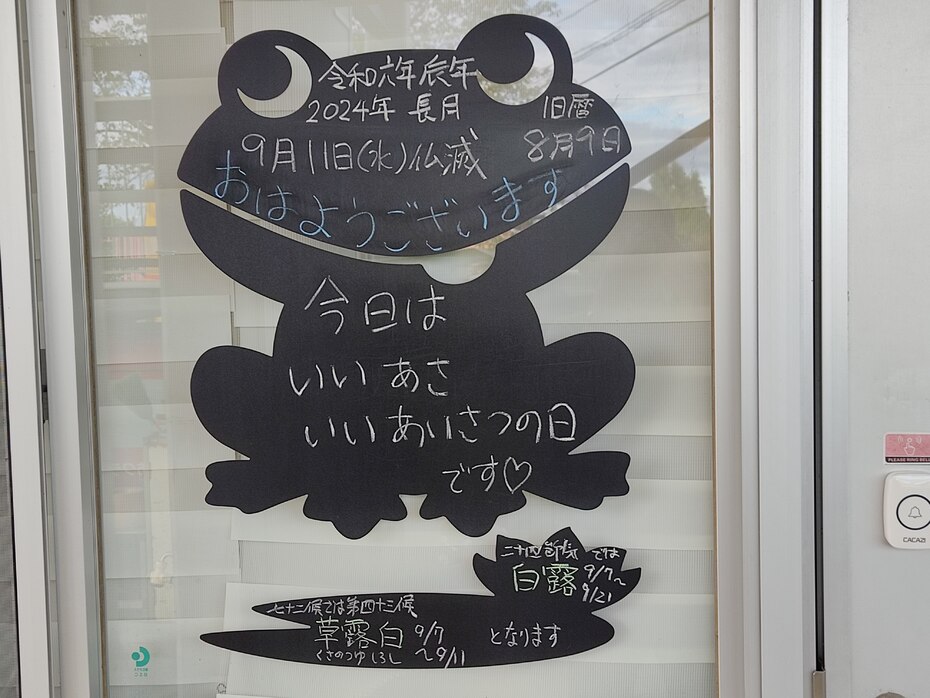 令和六年辰年
2024年 長月 旧暦
9月11日(水)仏滅 8月9日
おはようございます
今日は
いい あさ
いい あいさつの日
です♡
二十四節気 では
白露 9/7~
9/21
七十二候では第四十三候
草露白 9/7 となります
くさのつゆしろし ~9/11
PLEASE RING BELL
CACAZI